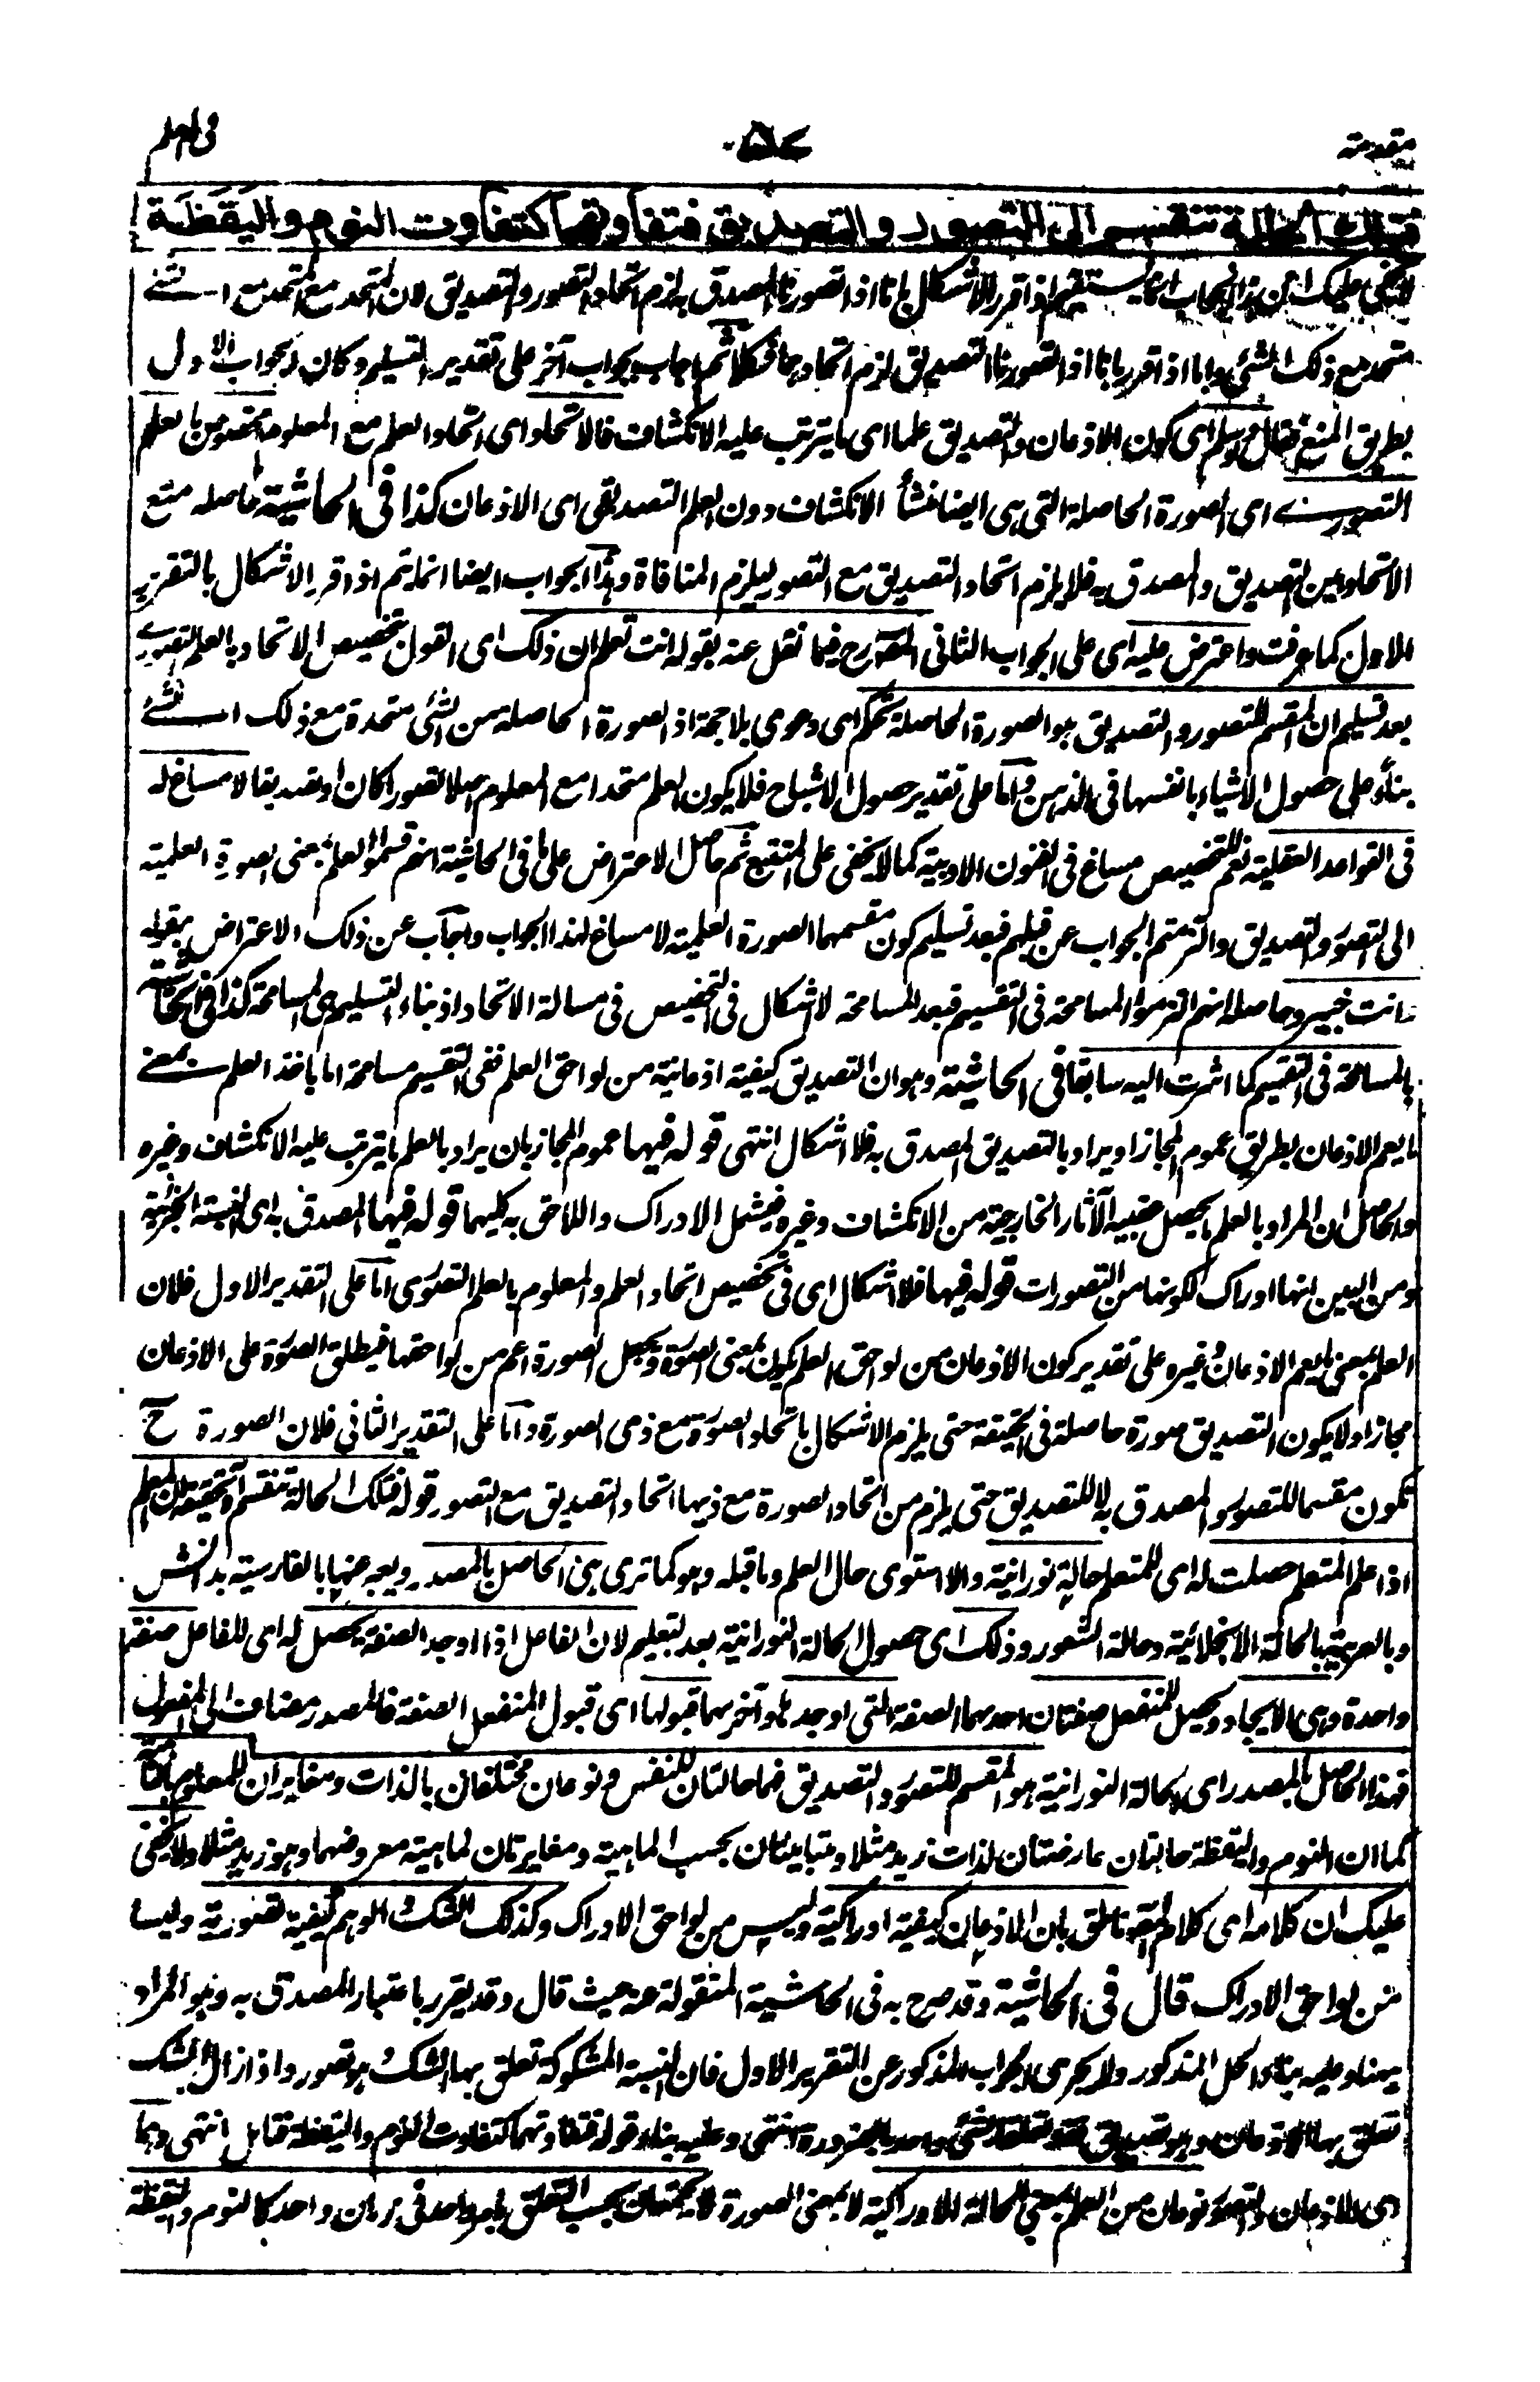 مقدمة
٥٧
فى العلم
فتلك الحالة تنقسم الى التصور والتصديق فتفاوتهما كتفاوت النوم واليقظة
لا يخفى عليك ان هذا الجواب انما يستقيم اذا قرر الاشكال بانا اذا تصورنا المصدق به لزم اتحاد التصور والتصديق لان المتحد مع المتحد مع الشئ
متحد مع ذلك الشئ واما اذا قرر بانا اذا تصورنا التصديق لزم اتحادهما فكلا ثم اجاب بجواب آخر على تقدير التسليم وكان الجواب الاول
بطريق المنع فقال ولو سلم اى كون الاذعان والتصديق علما اى ما يترتب عليه الانكشاف فالاتحاد اى اتحاد العلم مع المعلوم مخصوص بالعلم
التصورى اى الصورة الحاصلة التى هى ايضا منشأ الانكشاف دون العلم التصديقى اى الاذعان كذا فى الحاشية حاصله منع
الاتحاد بين التصديق والمصدق به فلا يلزم اتحاد التصديق مع التصور ليلزم المنافاة وهذا الجواب ايضا انما يتم اذا قرر الاشكال بالتقرير
الاول كما عرفت واعترض عليه اى على الجواب الثانى المصرح فيما نقل عنه بقوله انت تعلم ان ذلك اى القول بتخصيص الاتحاد بالعلم التصورى
بعد تسليم ان المقسم للتصور والتصديق هو الصورة الحاصلة تحكم اى دعوى بلا حجة اذ الصورة الحاصلة من الشئ متحدة مع ذلك الشئ
بناءً على حصول الاشياء بانفسها فى الذهن واما على تقدير حصول الاشباح فلا يكون العلم متحدا مع المعلوم اصلا تصورا كان او تصديقا لا مساغ له
فى القواعد العقلية نعم للتخصيص مساغ فى الفنون الادبية كما لا يخفى على المتتبع ثم حاصل الاعتراض على ما فى الحاشية انهم قسموا العلم بمعنى الصورة العلمية
الى التصور والتصديق والتزمتم الجواب عن قبلهم فبعد تسليم كون مقسمهما الصورة العلمية لا مساغ لهذا الجواب واجاب عن ذلك الاعتراض بقوله
وانت خبير وحاصله انهم التزموا المسامحة فى التقسيم فبعد المسامحة لا اشكال فى التخصيص فى مسالة الاتحاد اذ بناء التسليم على المسامحة كذا فى الحاشية
بالمسامحة فى التقسيم كما اشرت اليه سابقا فى الحاشية وهو ان التصديق كيفية اذعانية من لواحق العلم ففى التقسيم مسامحة اما باخذ العلم بمعنى
ما يعم الاذعان بطريق عموم المجاز او يراد بالتصديق المصدق به فلا اشكال انتهى قوله فيها عموم المجاز بان يراد بالعلم ما يترتب عليه الانكشاف وغيره
والحاصل ان المراد بالعلم ما يحصل عقيبه الآثار الخارجية من الانكشاف وغيره فيشمل الادراك واللاحق به كليهما قوله فيها المصدق به اى النسبة الخبرية
ومن البين انها ادراك لكونها من التصورات قوله فيها فلا اشكال اى فى تخصيص اتحاد العلم والمعلوم بالعلم التصورى اما على التقدير الاول فلان
العلم بمعنى ما يعم الاذعان وغيره على تقدير كون الاذعان من لواحق العلم يكون بمعنى الصورة ويجعل الصورة اعم من لواحقها فيطلق الصورة على الاذعان
مجازا ولا يكون التصديق صورة حاصلة فى الحقيقة حتى يلزم الاشكال باتحاد الصورة مع ذى الصورة واما على التقدير الثانى فلان الصورة ح
تكون مقسما للتصور والمصدق به لا للتصديق حتى يلزم من اتحاد الصورة مع ذيها اتحاد التصديق مع التصور قوله فتلك الحالة تنقسم اه تحقيقه ان المعلم
اذا علم المتعلم حصلت له اى للمتعلم حالة نورانية والا استوى حال العلم وما قبله وهو كما ترى هى الحاصل بالمصدر ويعبر عنها بالفارسية بدانش
وبالعربية بالحالة الانجلائية وحالة الشعور وذلك اى حصول الحالة النورانية بعد التعليم لان الفاعل اذا اوجد الصفة يحصل له اى للفاعل صفة
واحدة وهى الايجاد ويحصل للمنفعل صفتان احدهما الصفة التى اوجدها وآخرهما قبولها اى قبول المنفعل الصفة فالمصدر مضاف الى المفعول
فهذا الحاصل بالمصدر اى الحالة النورانية هو المقسم للتصور والتصديق فهما حالتان للنفس ونوعان مختلفان بالذات ومغايران للمعلوم
كما ان النوم واليقظة حالتان عارضتان لذات زيد مثلا ومتباينتان بحسب الماهية ومغايرتان لماهية معروضهما وهو زيد مثلا ولا يخفى
عليك ان كلامه اى كلام المص ناطق بان الاذعان كيفية ادراكية وليس من لواحق الادراك وكذلك الشك والوهم كيفية تصورية وليسا
من لواحق الادراك قال فى الحاشية وقد صرح به فى الحاشية المنقولة عنه حيث قال وقد يقرر باعتبار المصدق به وهو المراد
ههنا وعليه بناء الحل المذكور ولا يجرى الجواب المذكور عن التقرير الاول فان النسبة المشكوكة تعلق بها الشك وهو تصور واذا زال الشك
تعلق بها الاذعان وهو تصديق فقد تعلقا بشئ واحد بالضرورة انتهى وعليه بناء قوله فتفاوتهما كتفاوت النوم واليقظة فتامل انتهى وهما
اى الاذعان والتصور نوعان من العلم بمعنى الحالة الادراكية لا بمعنى الصورة لا يجتمعان بحسب التعلق بامر واحد فى زمان واحد كالنوم واليقظة